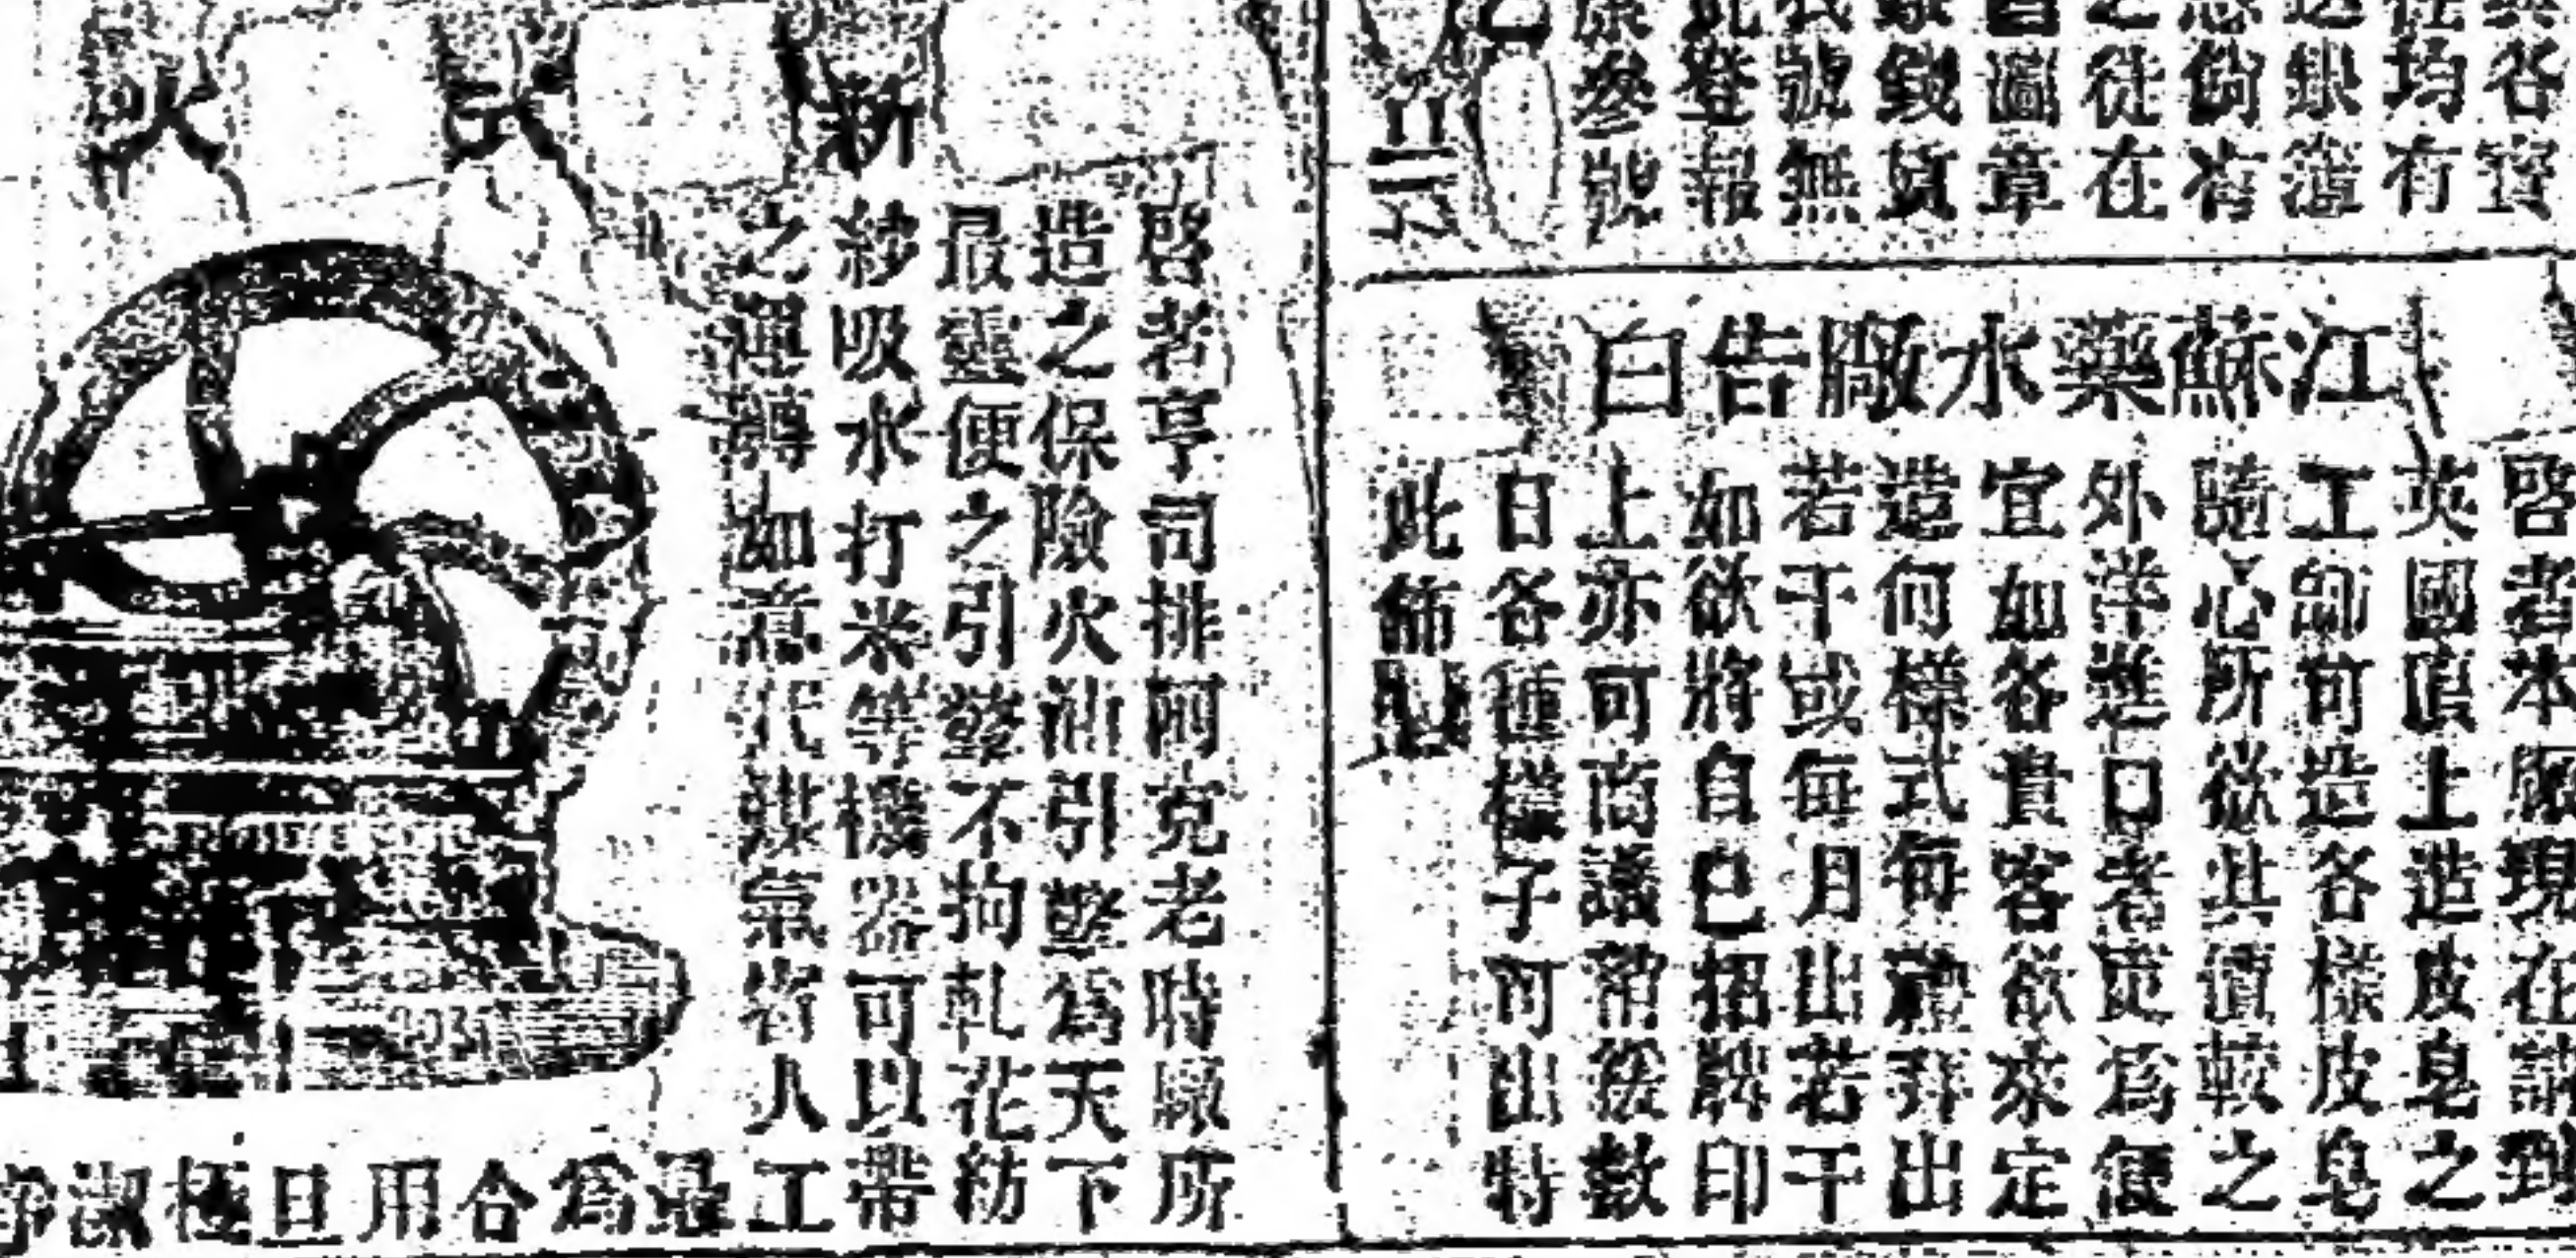 各寶
均有
銀簿
倘有
徒在
圖章
錢貨
號無
登報
江蘇藥水廠告白
啓者本廠現在請到
英國頂上造皮皂之
工師可造各樣皮皂
隨心所欲其價較之
外洋進口者更爲便
宜如各貴客欲來定
造何樣式每禮拜出
若干或每月出若干
如欲將自己招牌印
上亦可商議稍緩數
日各種樣子可出特
此佈
新式火
啓者亨司排阿克老時廠所
造之保險火油引擎爲天下
最靈便之引擎不拘軋花紡
紗吸水打米等機器可以帶
之運轉如意代煤氣省人
工最爲合用且極潔淨